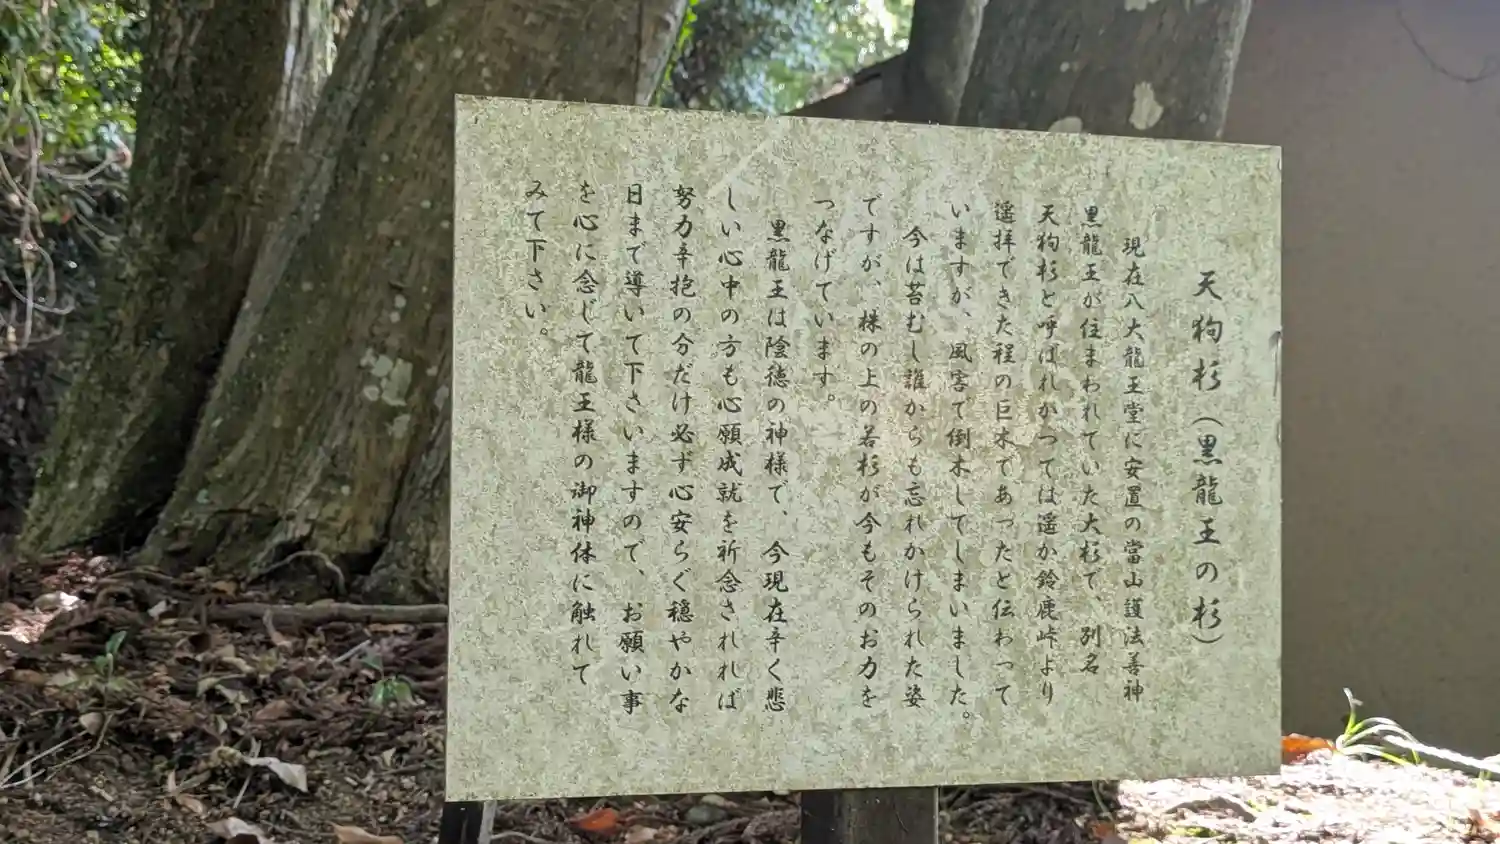 天狗杉（黒龍王の杉）
現在八大龍王堂に安置の當山護法善神
黒龍王が住まわれていた大杉で、別名
天狗杉と呼ばれかつては遥か鈴鹿峠より
遥拝できた程の巨木であったと伝わって
いますが、風害で倒木してしまいました。
今は苔むし誰からも忘れかけられた姿
ですが、株の上の若杉が今もそのお力を
つなげています。
黒龍王は陰徳の神様で、今現在辛く悲
しい心中の方も心願成就を祈念されれば
努力辛抱の分だけ必ず心安らぐ穏やかな
日まで導いて下さいますので、お願い事
を心に念じて龍王様の御神体に触れて
みて下さい。